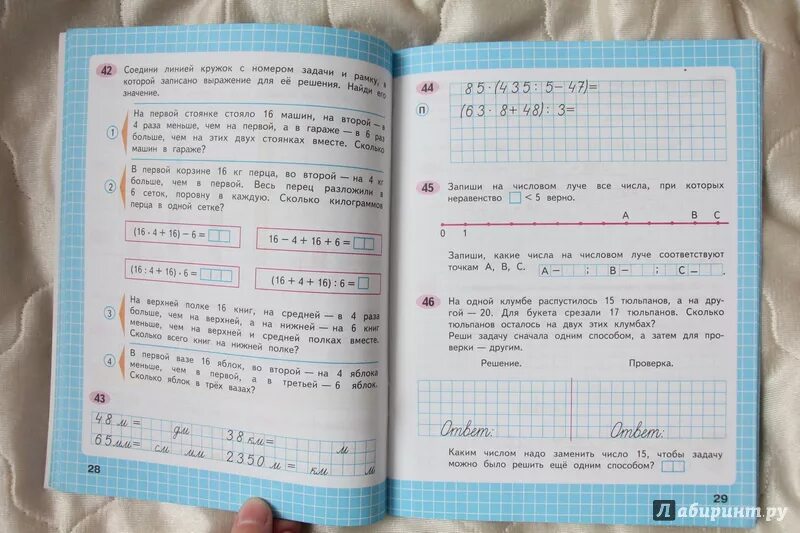 42 Соедини линией кружок с номером задачи и рамку, в
которой записано выражение для её решения. Найди его
значение.
1 На первой стоянке стояло 16 машин, на второй — в
4 раза меньше, чем на первой, а в гараже — в 6 раз
больше, чем на этих двух стоянках вместе. Сколько
машин в гараже?
2 В первой корзине 16 кг перца, во второй — на 4 кг
больше, чем в первой. Весь перец разложили в
6 сеток, поровну в каждую. Сколько килограммов
перца в одной сетке?
(16 · 4 + 16) − 6 =
16 − 4 + 16 + 6 =
(16 : 4 + 16) · 6 =
(16 + 4 + 16) : 6 =
3 На верхней полке 16 книг, на средней — в 4 раза
больше, чем на верхней, а на нижней — на 6 книг
меньше, чем на верхней и средней полках вместе.
Сколько всего книг на нижней полке?
4 В первой вазе 16 яблок, во второй — на 4 яблока
меньше, чем в первой, а в третьей — 6 яблок.
Сколько яблок в трёх вазах?
43
48 м = дм 38 км = м
65 мм = см мм 2350 м = км м
28
44 85 · (435 : 5 − 47) =
П (63 · 8 + 48) : 3 =
45 Запиши на числовом луче все числа, при которых
неравенство < 5 верно.
А В С
0 1
Запиши, какие числа на числовом луче соответствуют
точкам А, В, С. А − ; В − ; С − .
46 На одной клумбе распустилось 15 тюльпанов, а на дру-
гой — 20. Для букета срезали 17 тюльпанов. Сколько
тюльпанов осталось на двух этих клумбах?
Реши задачу сначала одним способом, а затем для про-
верки — другим.
Решение. Проверка.
Ответ: Ответ:
Каким числом надо заменить число 15, чтобы задачу
можно было решить ещё одним способом?
29
Лабиринт.ру